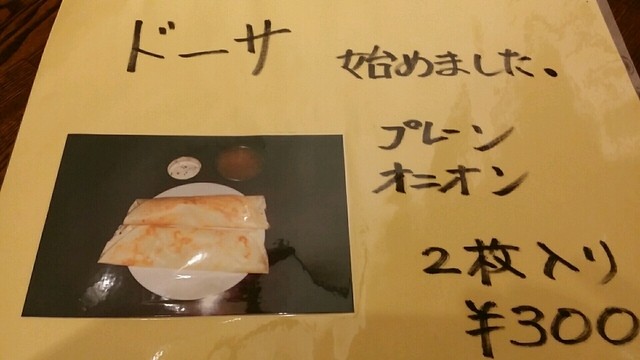 ドーサ 始めました。
プレーン
オニオン
2枚入り
¥300